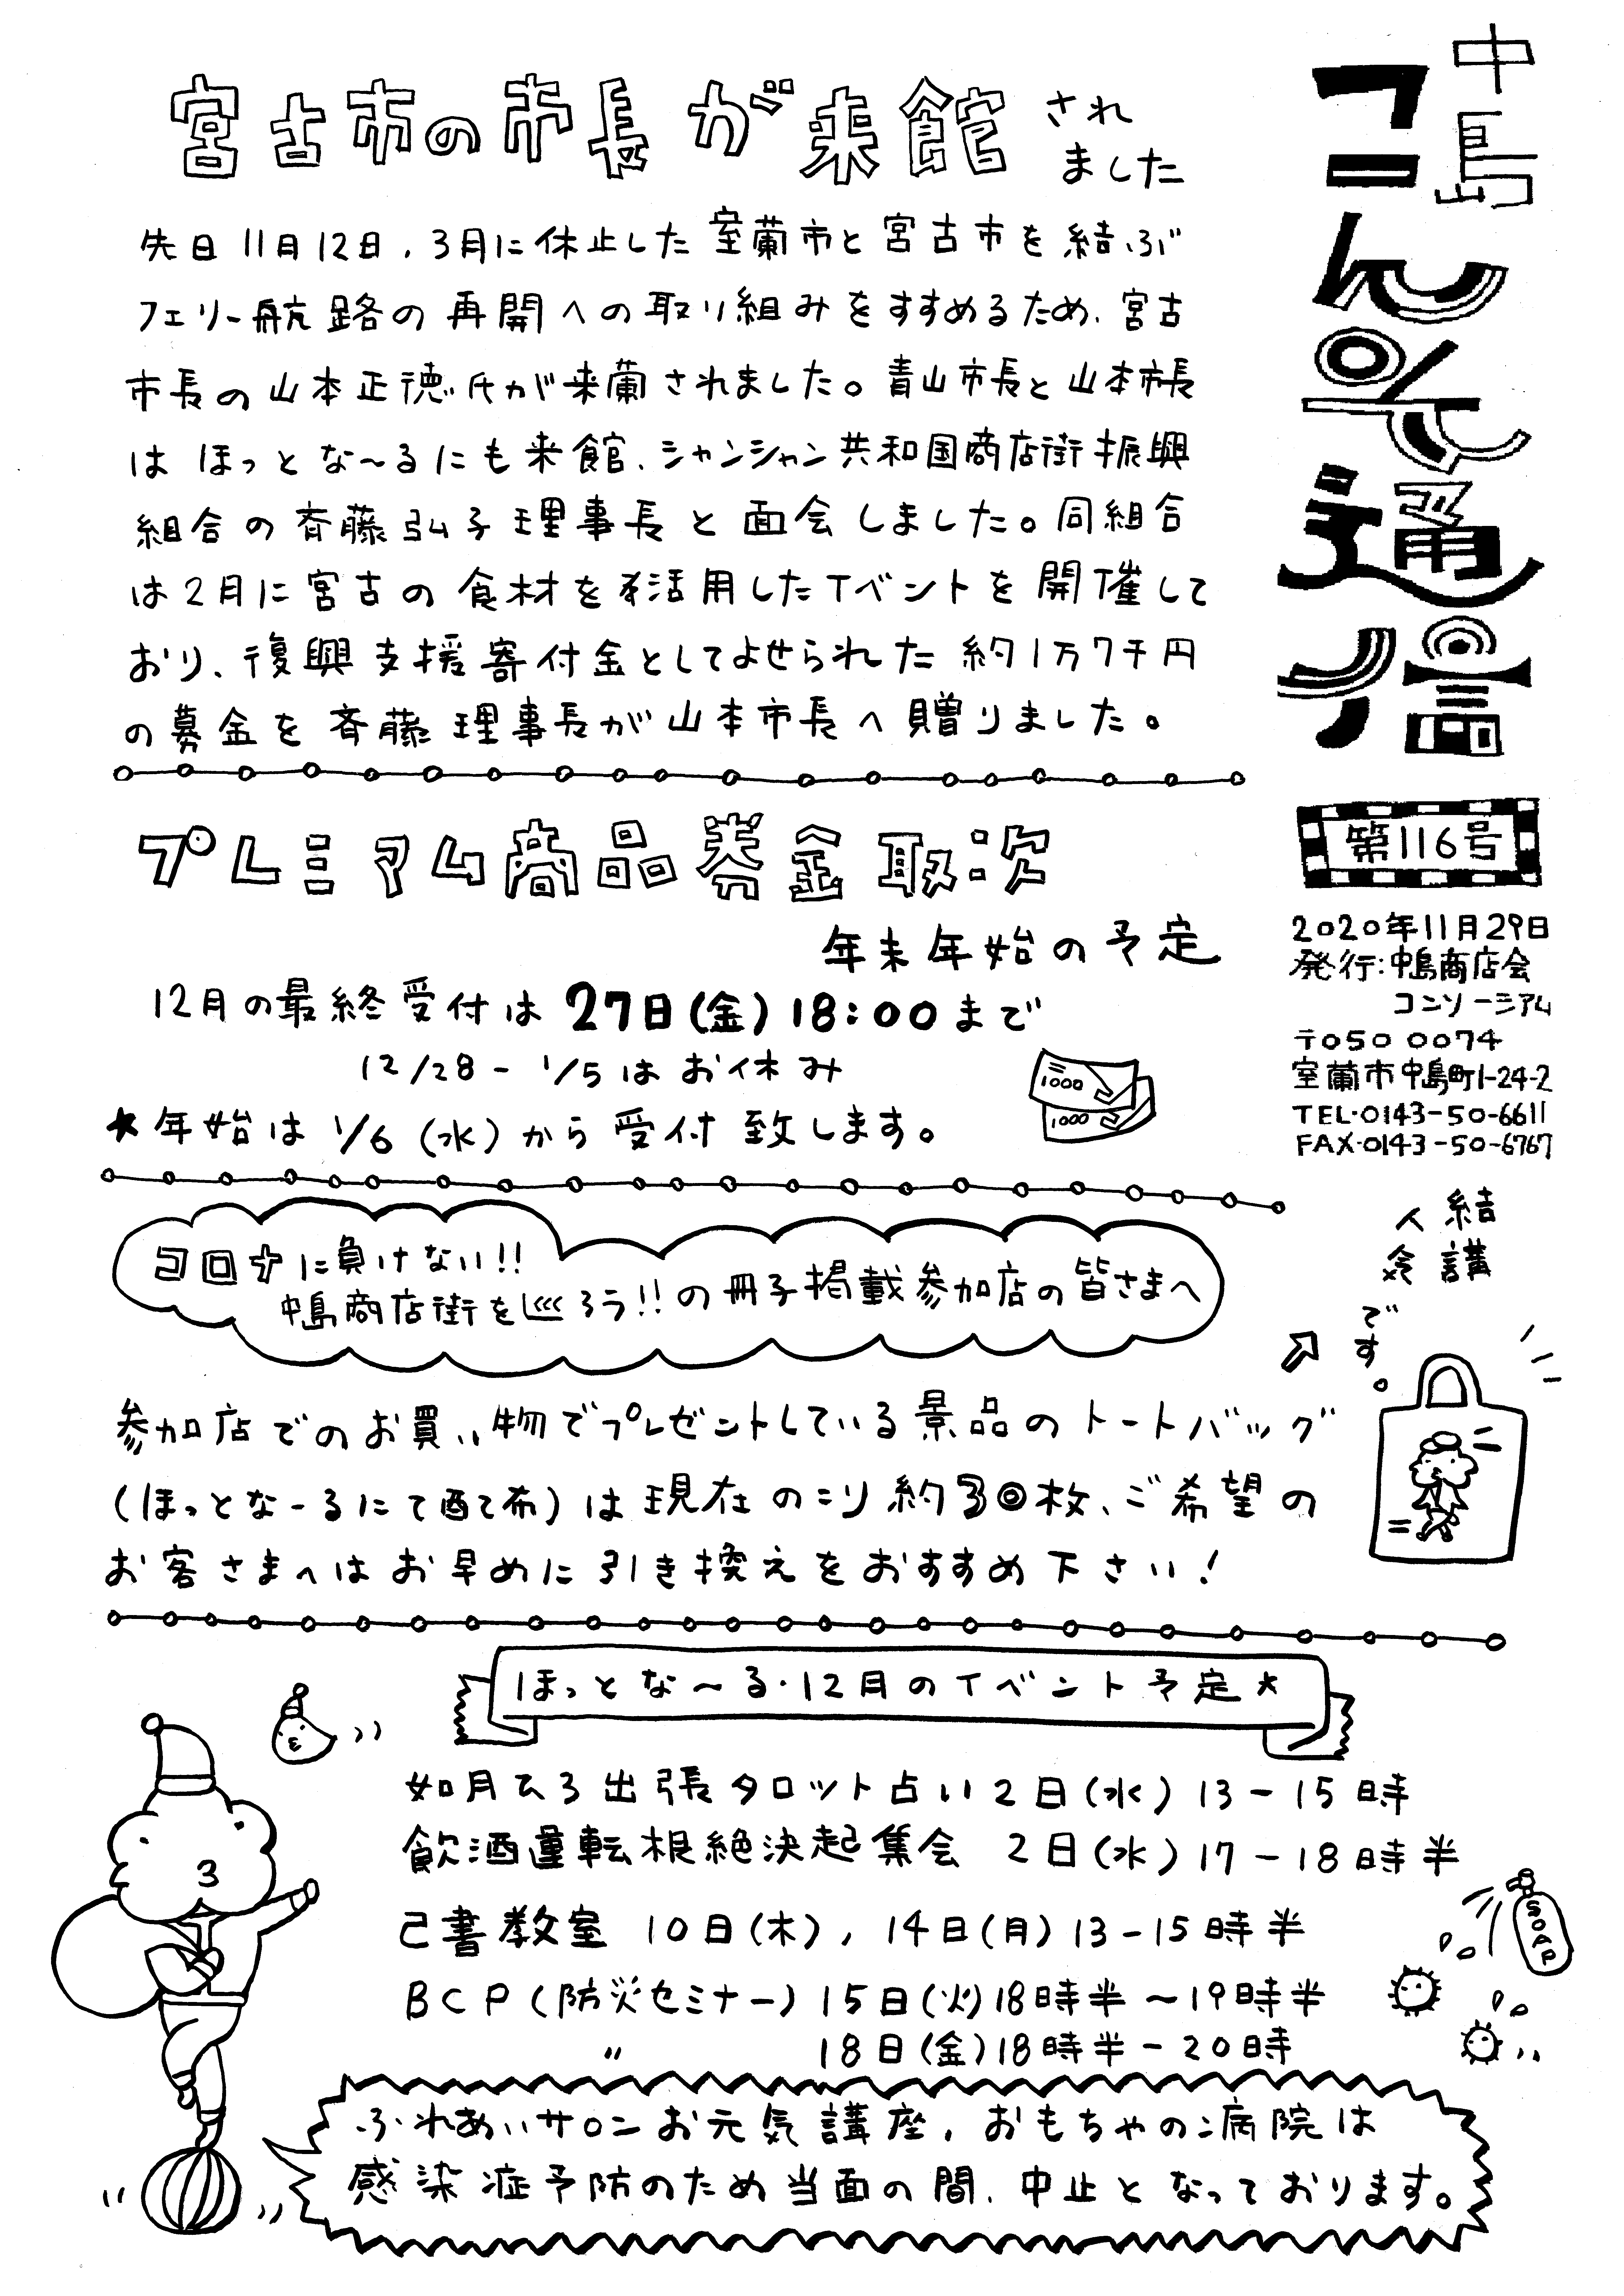 中島
コンソ通信
第116号
2020年11月29日
発行:中島商店会
コンソーシアム
〒050 0074
室蘭市中島町1-24-2
TEL・0143-50-6611
FAX・0143-50-6767
宮古市の市長が来館されました
先日11月12日、3月に休止した室蘭市と宮古市を結ぶ
フェリー航路の再開への取り組みをすすめるため、宮古
市長の山本正徳氏が来蘭されました。青山市長と山本市長
はほっとな〜るにも来館、シャンシャン共和国商店街振興
組合の斉藤弘子理事長と面会しました。同組合
は2月に宮古の食材を活用したイベントを開催して
おり、復興支援寄付金としてよせられた約1万7千円
の募金を斉藤理事長が山本市長へ贈りました。
プレミアム商品券金取次
年末年始の予定
12月の最終受付は27日(金)18:00まで
12/28- 1/5はお休み
★年始は1/6(水)から受付致します。
1000
1000
コロナに負けない!!
中島商店街を巡ろう!!の冊子掲載参加店の皆さまへ
参加店でのお買い物でプレゼントしている景品のトートバッグ
(ほっとなーるにて配布)は現在のこり約30枚、ご希望の
お客さまへはお早めに引き換えをおすすめ下さい!
結構
人気
です。
ほっとな〜る・12月のイベント予定★
如月ひろ出張タロット占い 2日(水)13-15時
飲酒運転根絶決起集会 2日(水)17-18時半
己書教室 10日(木),14日(月)13-15時半
BCP(防災セミナー)15日(火)18時半〜19時半
〃 18日(金)18時半-20時
SOAP
ふれあいサロンお元気講座、おもちゃの病院は
感染症予防のため当面の間、中止となっております。